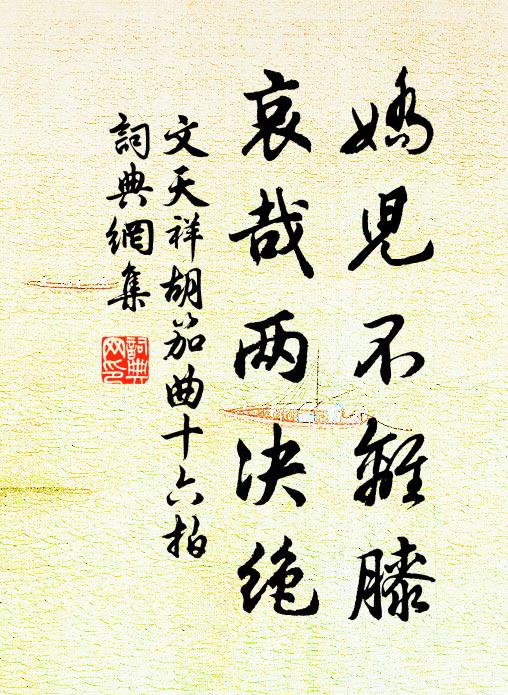 嬌兒不離膝
哀哉两决绝
文天祥胡笳曲十六拍
詞典網集
詞典网印